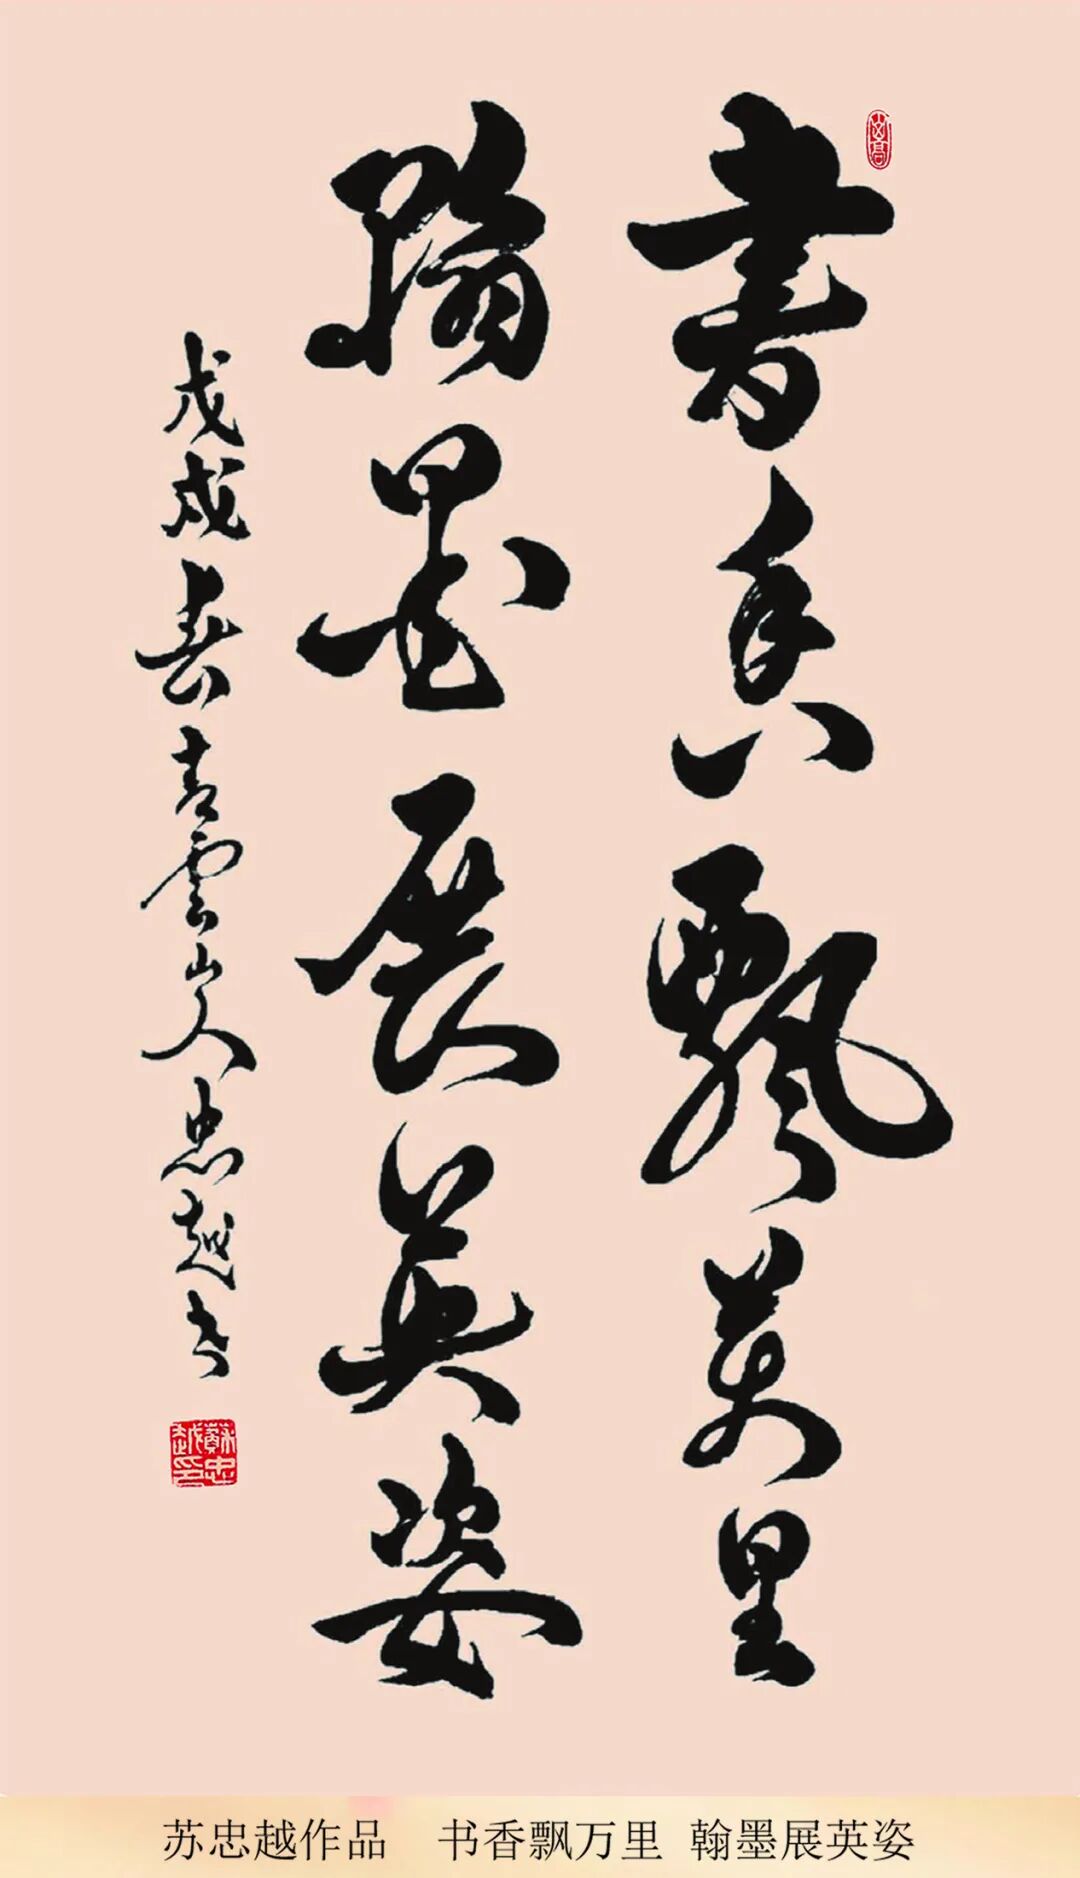 書香飄萬里
翰墨展英姿
戊戌春青雲山人忠越书
蘇忠越印
苏忠越作品 书香飘万里 翰墨展英姿